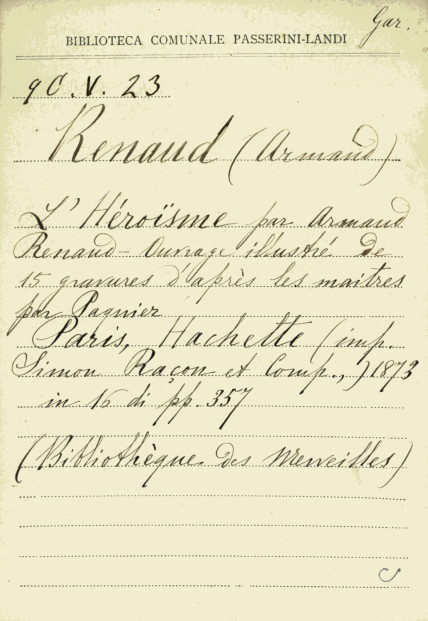 Gar.
BIBLIOTECA COMUNALE PASSERINI-LANDI
9C.V.23
Renaud (Armand)
L'Héroïsme par Armand
Renaud - Ouvrage illustré de
15 gravures d'après les maitres
par Pagnier
Paris, Hachette (imp.
Simon Raçon et Comp.,) 1873
in 16 di pp. 357
(Bibliothèque des Merveilles)